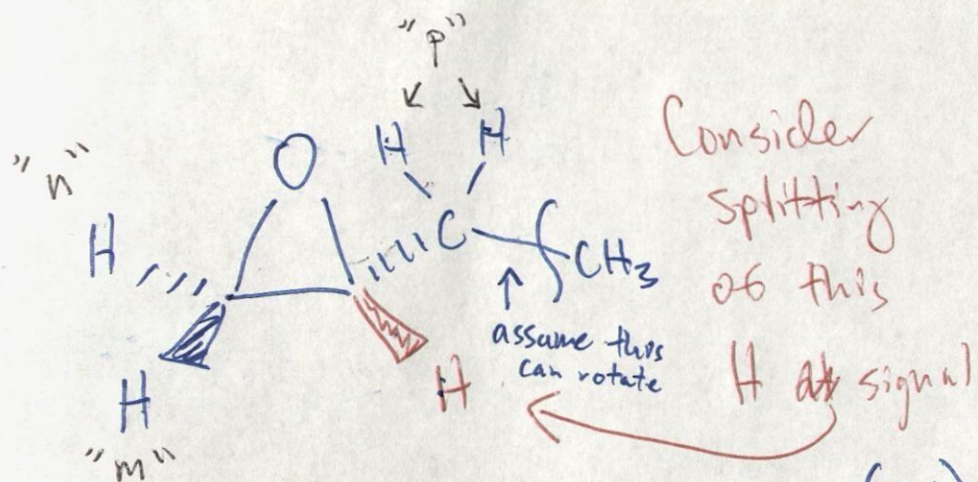 "p"
H H
"n"
O
H
C
CH3
H
H
"m"
assume this
can rotate
Consider
splitting
of this
H signal